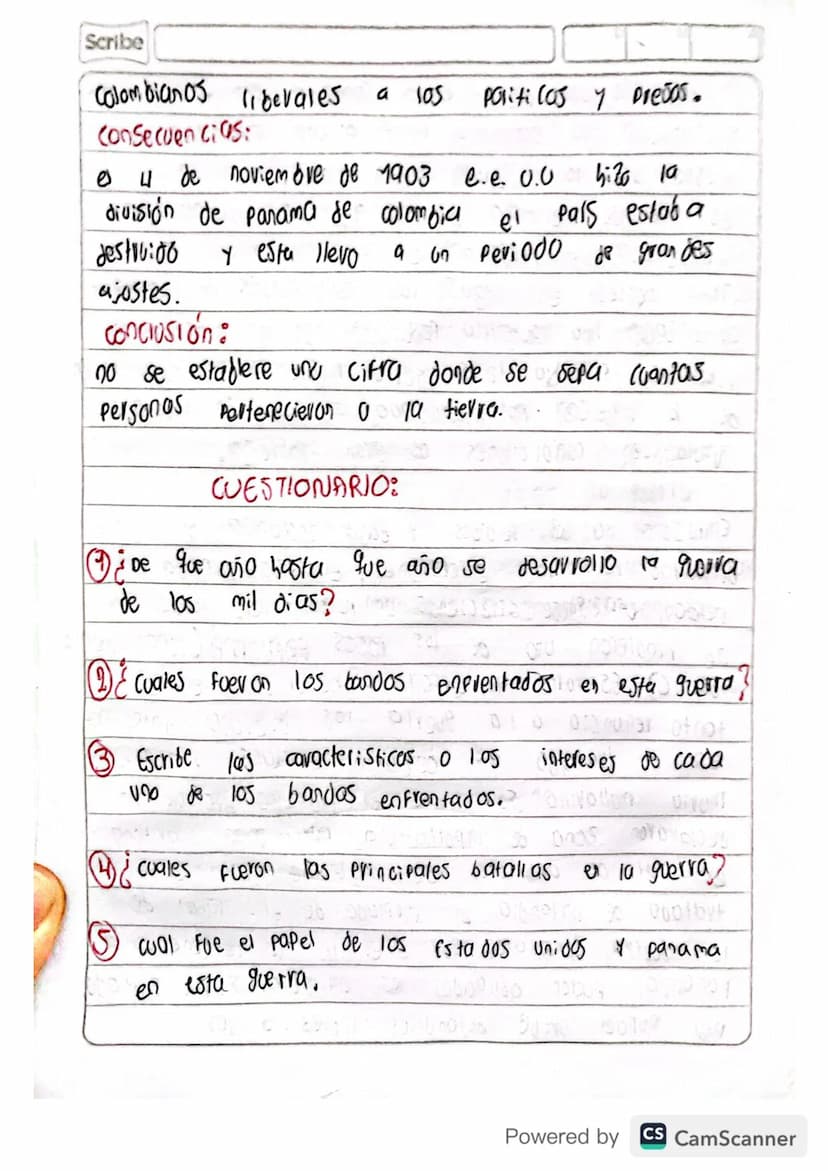 Scribe
Colombianos liberales a los políticos y presos.
Consecuencias:
el 4 de noviembre de 1903 e.e. U.U hizo la
división de panama de colombia el país estaba
destruido y esta llevo a un periodo de grandes
ajostes.
Conclusión:
no se establere una cifra donde se sepa cuantas
personas pertenecieron a la tierra.
CUESTIONARIO:
1 ¿De que año hasta que año se desarrollo la guerra
de los mil dias?
2 ¿cuales fueron los bandos enfrentados en esta guerra?
3 Escribe las caracteristicos o los intereses de cada
uno de los bandos enfrentados.
4 ¿cuales fueron las principales batallas en la guerra?
5 cual fue el papel de los Estados unidos y panama
en esta guerra.
Powered by CS CamScanner